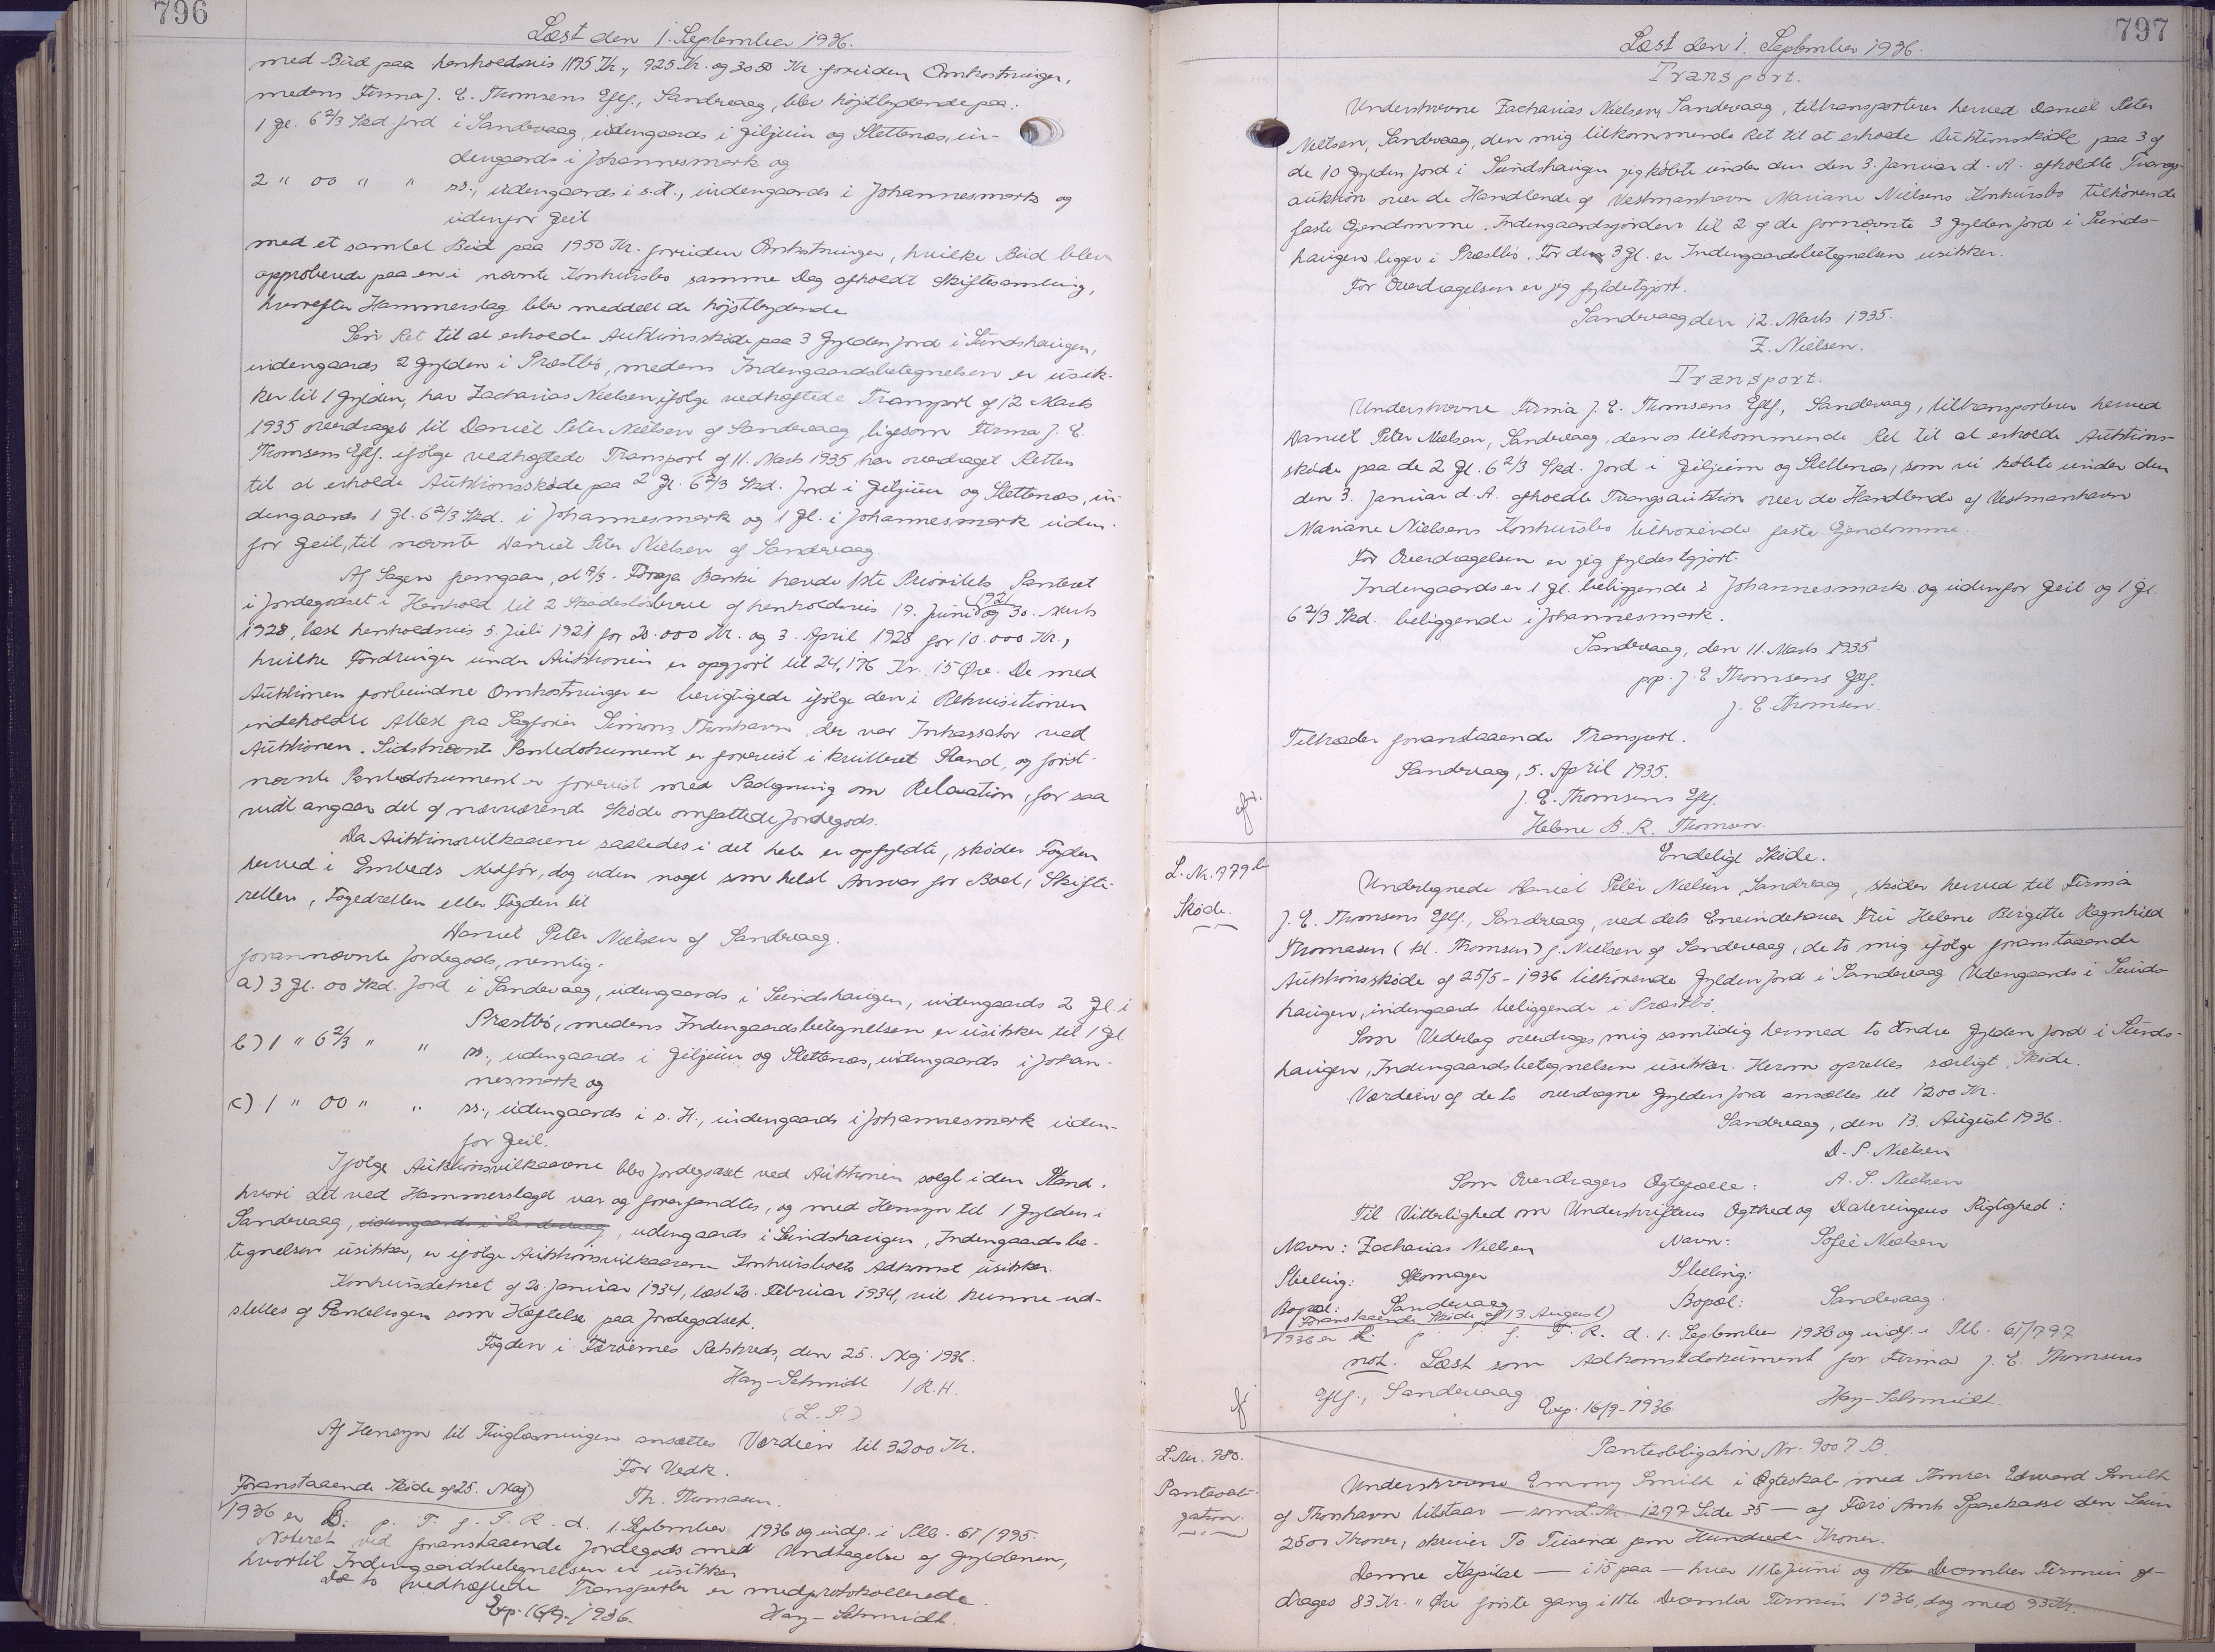 796
Læst den 1. September 1936.
med Bud paa henholdsvis 1175 Kr., 725 Kr. og 3050 Kr. foruden Omkostninger,
medens Firma J. E. Thomsens Eftf., Sandevaag, blev højstbydende paa:
1 Gl. 6 2/3 Skd Jord i Sandevaag, udengaards i Giljum og Slettenæs, in-
dengaards i Johannesmark og
2 " 00 " " ss., udengaards i s. H., indengaards i Johannesmark og
udenfor Geil
med et samlet Bud paa 1950 Kr. foruden Omkostninger, hvilke Bud blev
approberede paa en i nævnte Konkursbo samme Dag afholdt Skiftesamling,
hvorefter Hammerslag blev meddelt de højstbydende
Sin Ret til at erholde Auktionsskøde paa 3 Gylden Jord i Sundshaugen,
indengaards 2 Gylden i Præstbø, medens Indengaardsbetegnelsen er usik-
ker til 1 Gylden, har Zacharias Nielsen ifølge vedhæftede Transport af 12 Marts
1935 overdraget til Daniel Peter Nielsen af Sandevaag, ligesom Firma J. E.
Thomsens Eftf. ifølge vedhæftede Transport af 11. Marts 1935 har overdraget Retten
til at erholde Auktionsskøde paa 2 Gl. 6 2/3 Skd. Jord i Giljum og Slettenæs, in-
dengaards 1 Gl. 6 2/3 Skd. i Johannesmark og 1 Gl. i Johannesmark uden-
for Geil, til nævnte Daniel Peter Nielsen af Sandevaag
Af Sagen fremgaar, at A/S. Føroya Banki havde 1ste Prioritets Panteret
i Jordegodset i Henhold til 2 Skadesløsbreve af henholdsvis 17. Juni 1921 og 30. Marts
1928, læst henholdsvis 5. Juli 1921 for 20.000 Kr. og 3. April 1928 for 10.000 Kr.,
hvilke Fordringer under Auktionen er opgjort til 24,176 Kr. 15 Øre. De med
Auktionen forbundne Omkostninger er berigtigede ifølge den i Rekvisitionen
indeholdte Attest fra Sagfører Simons, Thorshavn, der var Inkassator ved
Auktionen. Sidstnævnte Pantedokument er forevist i kvitteret Stand, og først-
nævnte Pantedokument er forevist med Paategning om Relaxation, for saa
vidt angaar det af nærværende Skøde omfattede Jordegods.
Da Auktionsvilkaarene saaledes i det hele er opfyldte, skøder Fogden
herved i Embeds Medfør, dog uden noget som helst Ansvar for Boet, Skifte-
retten, Fogedretten eller Fogden til
Daniel Peter Nielsen af Sandevaag.
forannævnte Jordegods, nemlig:
a) 3 Gl. 00 Skd. Jord i Sandevaag, udengaards i Sundshaugen, indengaards 2 Gl. i
Præstbø, medens Indengaardsbetegnelsen er usikker til 1 Gl.
b) 1 " 6 2/3 " " ss., udengaards i Giljum og Slettenæs, indengaards i Johan-
nesmark og
c) 1 " 00 " " ss., udengaards i s. H., indengaards i Johannesmark uden-
for Geil.
Ifølge Auktionsvilkaarene blev Jordegodset ved Auktionen solgt i den Stand,
hvori det ved Hammerslaget var og forefandtes, og med Hensyn til 1 Gylden i
Sandevaag, udengaards i Sandevaag, udengaards i Sundshaugen, Indengaardsbe-
tegnelsen usikker, er ifølge Auktionsvilkaarene Konkursboets Adkomst usikker.
Konkursdekret af 20. Januar 1934, læst 20. Februar 1934, vil kunne ud-
slettes af Pantebogen som Hæftelse paa Jordegodset.
Fogden i Færøernes Retskreds, den 25. Maj 1936.
Hay-Schmidt / R. H.
(L. S.)
Af Hensyn til Tinglæsningen ansættes Værdien til 3200 Kr.
For Vedk.
Th. Thomasen.
Foranstaaende Skøde af 25. Maj
1936 er L. p. T. f. F. R. d. 1. September 1936 og indf. i Pllb. 67/795
Noteret ved foranstaaende Jordegods med Undtagelse af Gyldenen,
hvortil Indengaardsbetegnelsen er usikker
De to vedhæftede Transporter er medprotokollerede.
Exp. 16/9-1936. Hay-Schmidt.
797
Læst den 1. September 1936.
Transport.
Underskrevne Zacharias Nielsen, Sandevaag, tiltransporterer herved Daniel Peter
Nielsen, Sandevaag, den mig tilkommende Ret til at erholde Auktionsskøde paa 3 af
de 10 Gylden Jord i Sundshaugen jeg købte under den den 3. Januar d. A. afholdte Tvangs-
auktion over de Handlende af Vestmanhavn Mariane Nielsens Konkursbo tilhørende
faste Ejendomme. Indengaardsjorden til 2 af de fornævnte 3 Gylden Jord i Sunds-
haugen ligger i Præstbø. For den 3 Gl. er Indengaardsbetegnelsen usikker.
For Overdragelsen er jeg fyldestgjort.
Sandevaag den 12. Marts 1935.
Z. Nielsen.
Transport.
Underskrevne Firma J. E. Thomsens Eftf., Sandevaag, tiltransporterer herved
Daniel Peter Nielsen, Sandevaag, den os tilkommende Ret til at erholde Auktions-
skøde paa de 2 Gl. 6 2/3 Skd. Jord i Giljum og Slettenæs, som vi købte under den
den 3. Januar d. A. afholdte Tvangsauktion over de Handlende af Vestmanhavn
Mariane Nielsens Konkursbo tilhørende faste Ejendomme.
For Overdragelsen er jeg fyldestgjort.
Indengaards er 1 Gl. beliggende i Johannesmark og udenfor Geil og 1 Gl.
6 2/3 Skd. beliggende i Johannesmark.
Sandevaag, den 11. Marts 1935
pp. J. E. Thomsens Eftf.
J. E. Thomsen.
Tiltræder foranstaaende Transport.
Sandevaag, 5. April 1935.
J. E. Thomsens Eftf.
Helene B. R. Thomsen.
L. Nr. 979 b
Skøde.
Endeligt Skøde.
Undertegnede Daniel Peter Nielsen, Sandevaag, skøder herved til Firma
J. E. Thomsens Eftf., Sandevaag, ved dets Eneindehaver Fru Helene Birgitte Ragnhild
Thomasen (kl. Thomsen) f. Nielsen af Sandevaag, de to mig ifølge foranstaaende
Auktionsskøde af 25/5-1936 tilhørende Gylden Jord i Sandevaag Udengaards i Sunds-
haugen, indengaards beliggende i Præstbø.
Som Vederlag overdrages mig samtidig hermed to andre Gylden Jord i Sunds-
haugen, Indengaardsbetegnelsen usikker. Herom oprettes særligt Skøde.
Værdien af de to overdragne Gylden Jord ansættes til 1200 Kr.
Sandevaag, den 13. August 1936.
D. P. Nielsen
Som Overdragers Ægtefælle: A. S. Nielsen
Til Vitterlighed om Underskriftens Ægthed og Dateringens Rigtighed:
Navn: Zacharias Nielsen Navn: Sofie Nielsen
Stilling: Skomager Stilling:
Bopæl: Sandevaag Bopæl: Sandevaag.
Foranstaaende Skøde af 13. August
1936 er L. p. T. f. F. R. d. 1. September 1936 og indf. i Pllb. 67/797
not. Læst som Adkomstdokument for Firma J. E. Thomsens
Eftf., Sandevaag
Exp. 16/9-1936. Hay-Schmidt.
L. Nr. 980.
Panteobli-
gation.
Panteobligation Nr. 9007 B.
Underskrevne Emmy Smith i Ægteskab med Tømrer Edward Smith
af Thorshavn tilstaar — som L. Nr. 1297 Side 35 — af Færø Amts Sparekasse den Sum
2500 Kroner, skriver To Tusind fem Hundrede Kroner.
Denne Kapital — i 15 paa — hver 11te Juni og 11te December Termin af-
drages 83 Kr. " Øre første Gang i 11te December Termin 1936, dog med 93 Kr.